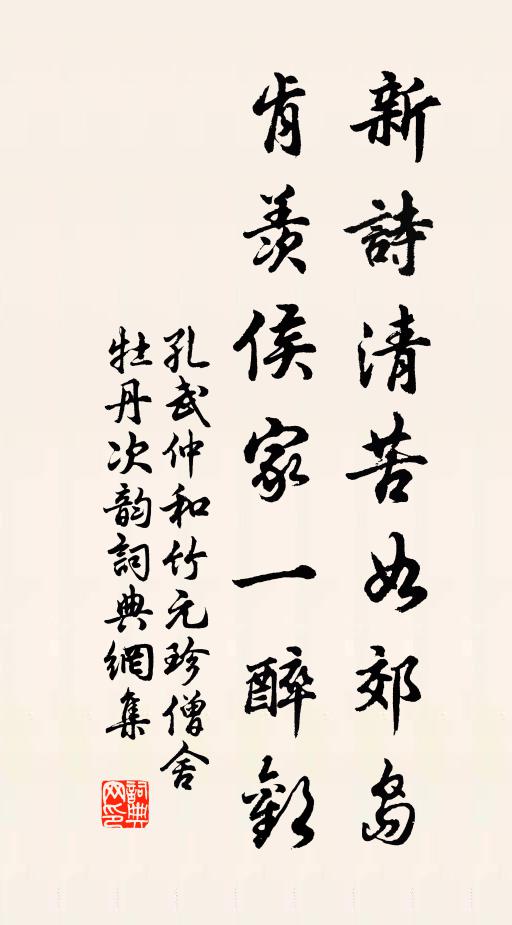 新詩清苦如郊島
肯羨侯家一醉歡
孔武仲和竹元珍僧舍
牡丹次韵詞典網集
詞典网印